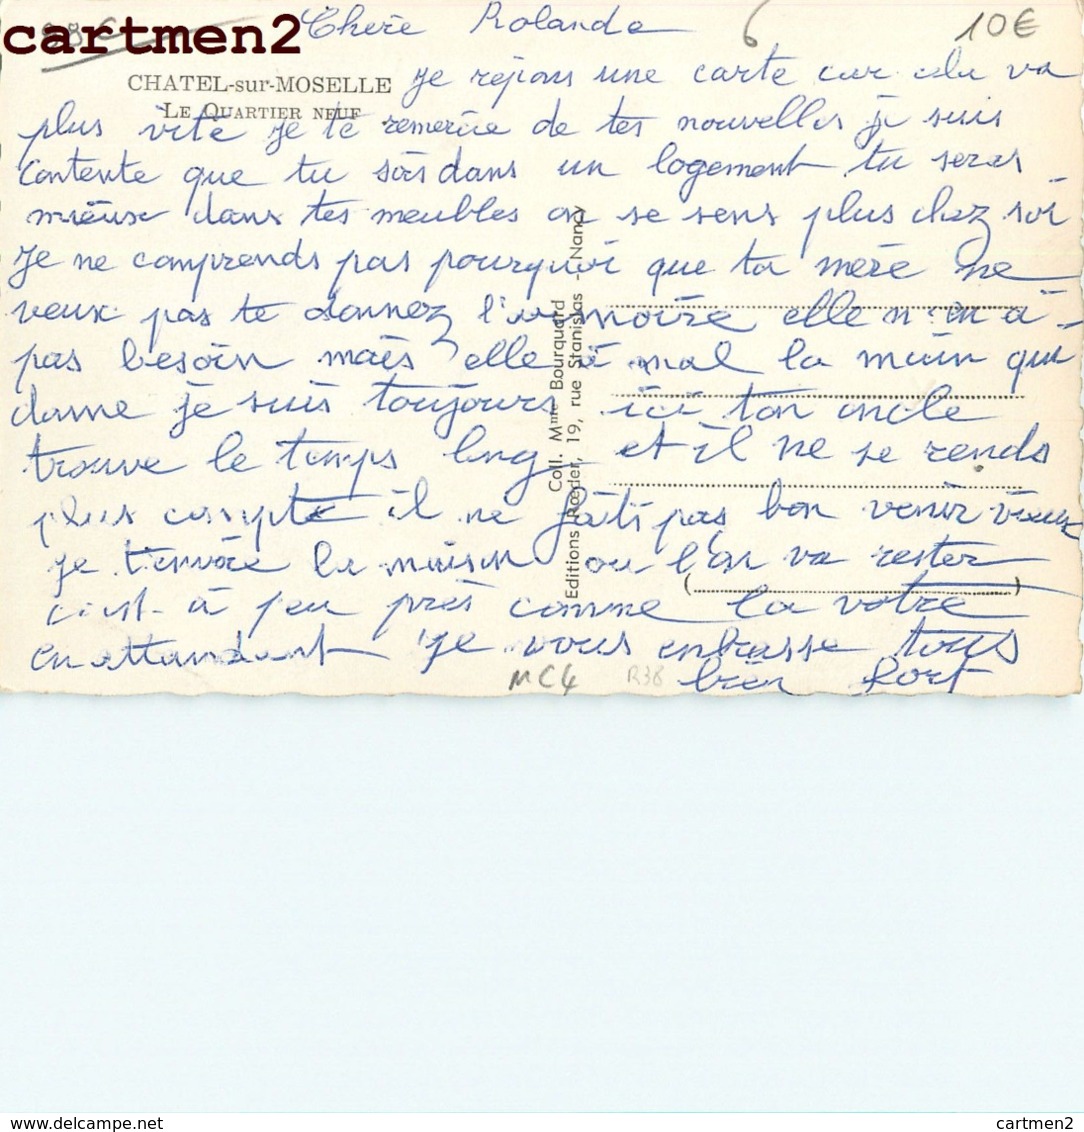 cartmen2
Chère Rolande
6
10€
CHATEL-sur-MOSELLE
LE QUARTIER NEUF
je répons une carte car cela va
plus vite je te remercie de tes nouvelles je suis
contente que tu sois dans un logement tu seras
mieux dans tes meubles on se sens plus chez soi
Je ne comprends pas pourquoi que ta mère ne
veux pas te donnez l'armoire elle n'en à
pas besoin mais elle à mal la main qui
donne je suis toujours ici ton oncle
trouve le temps long et il ne se rends
plus compte il ne faits pas bon venir vieux
je t'envoie la maison ou l'on va rester
c'est à peu près comme la votre
en attandant je vous enbrasse tous
bien fort
Coll. Mme Bourquard
Editions Rœder, 19, rue Stanislas - Nancy
MC4
R38
cartmen2